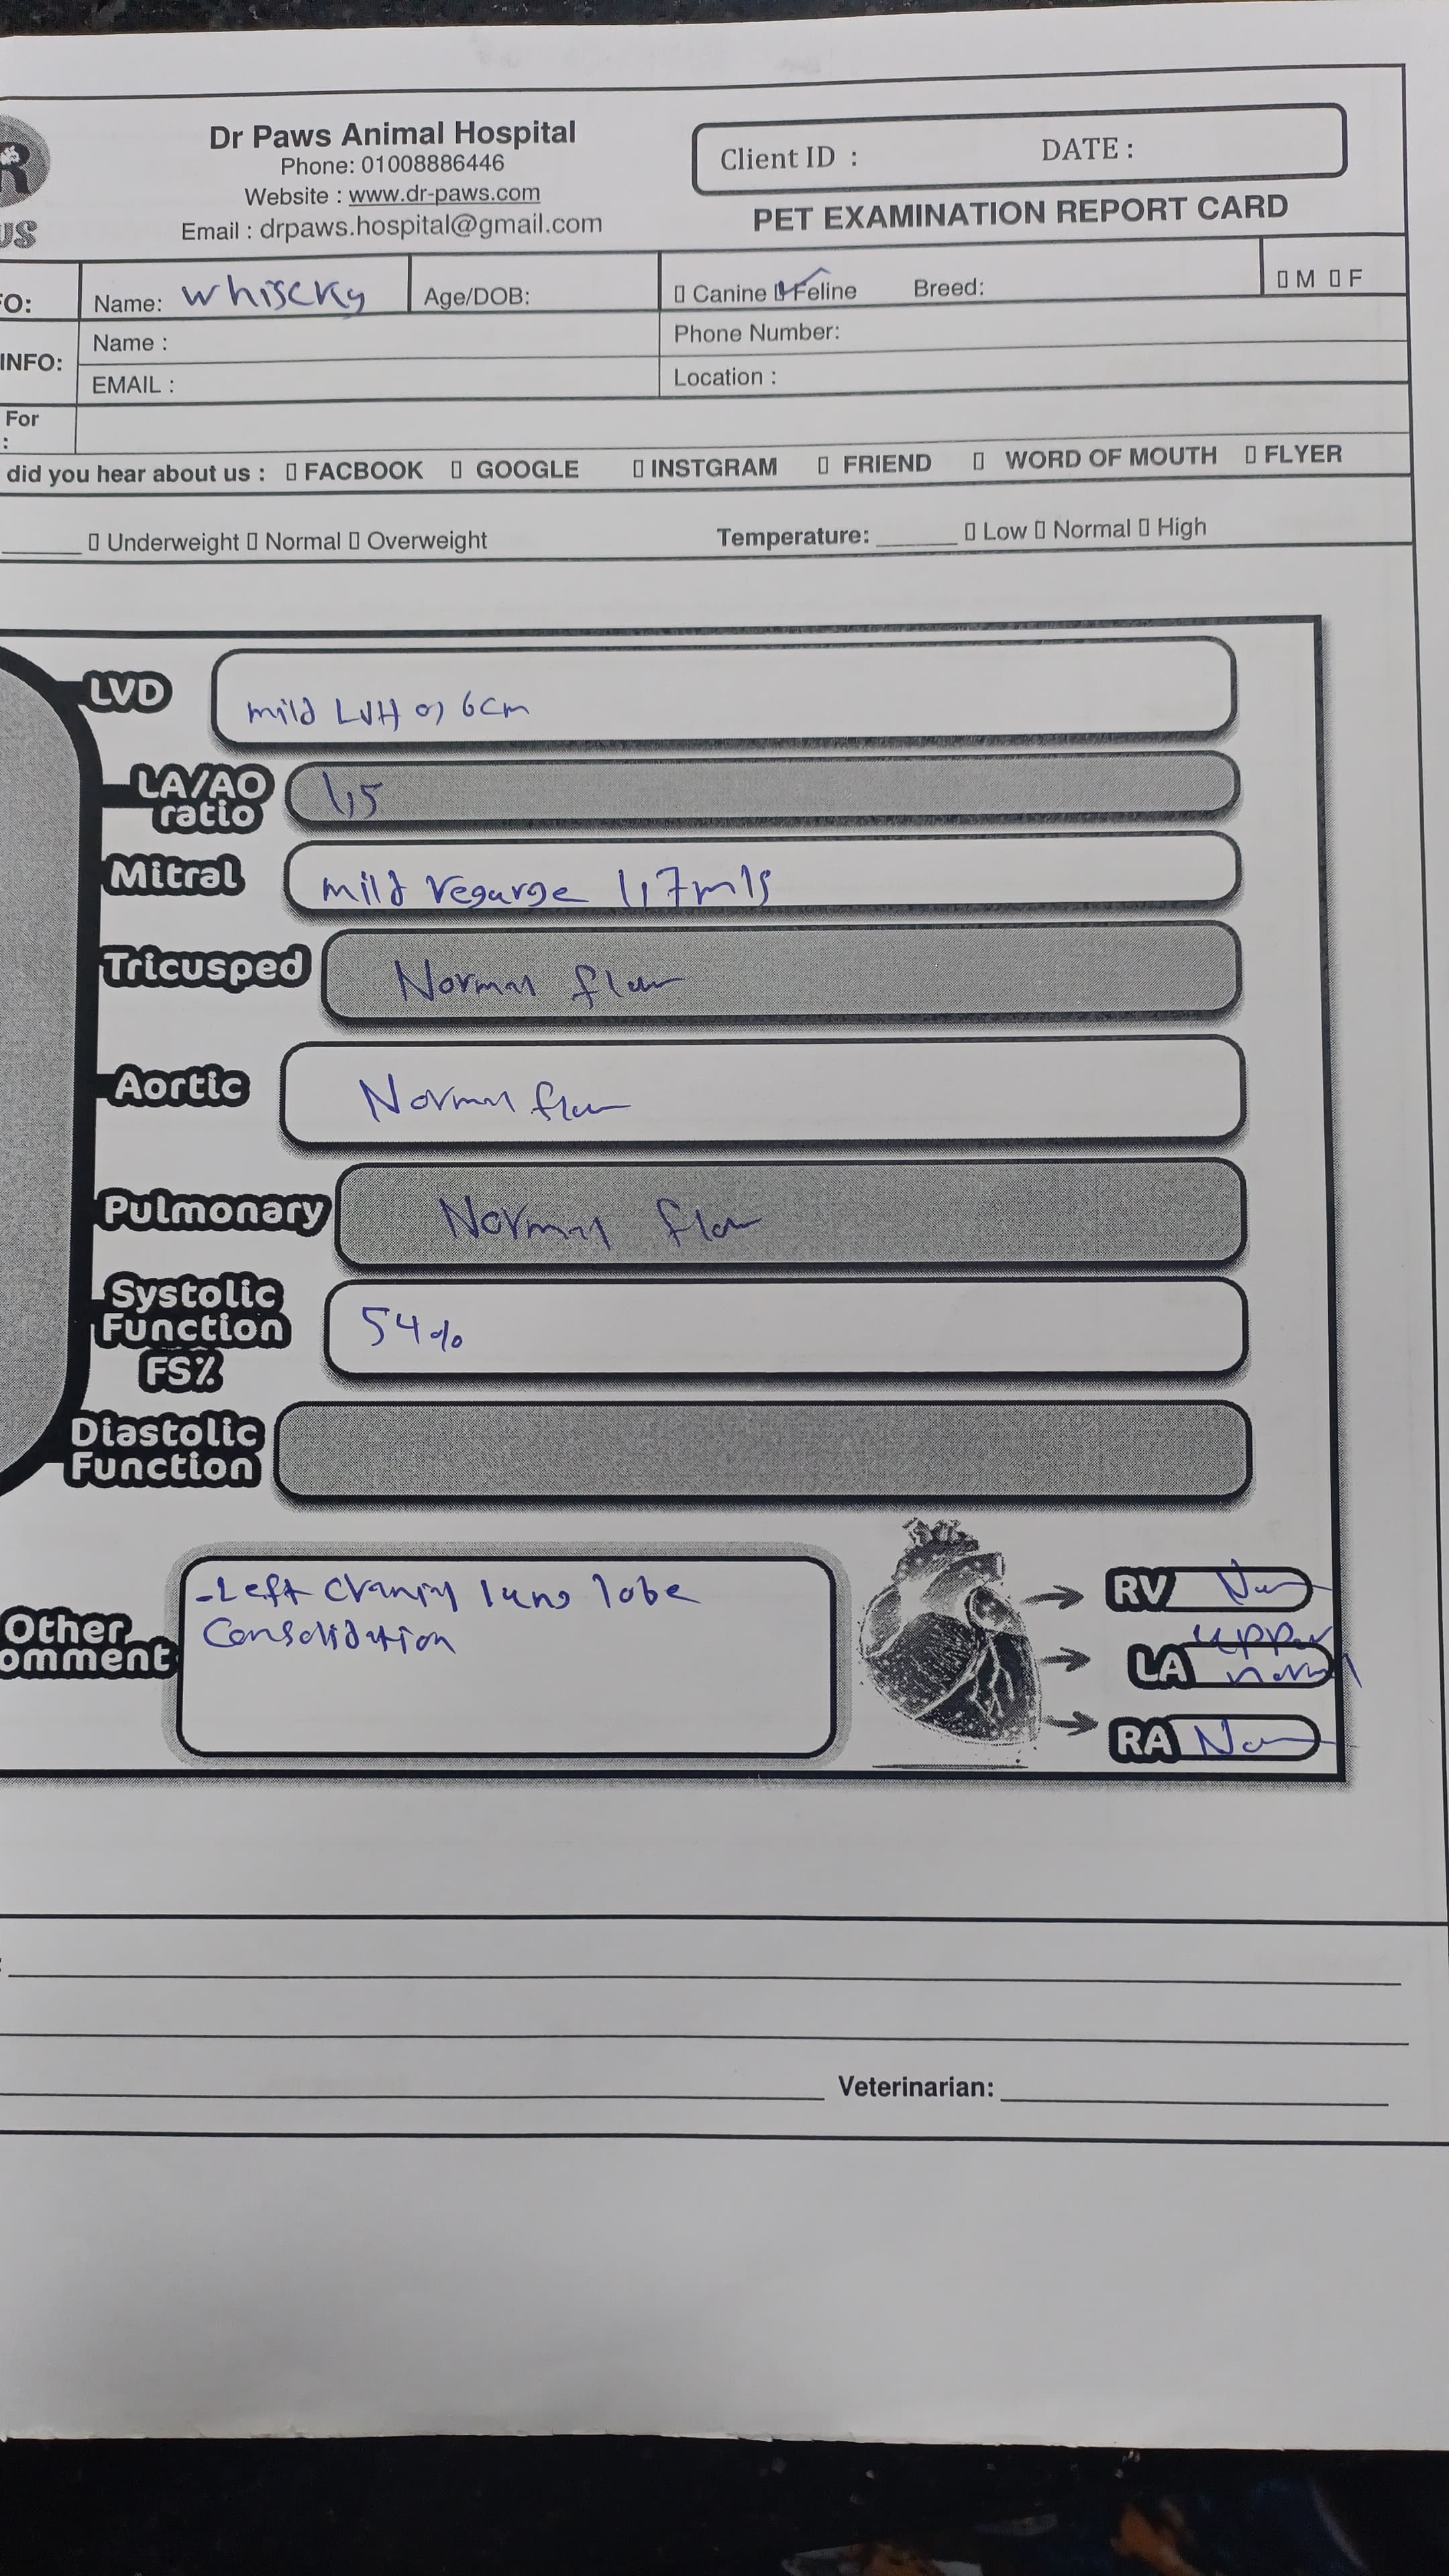 R
Dr Paws Animal Hospital
Phone: 01008886446
Website : www.dr-paws.com
Email : drpaws.hospital@gmail.com
US
Client ID : DATE :
PET EXAMINATION REPORT CARD
FO: Name: whiscky Age/DOB: Canine Feline Breed: M F
INFO: Name : Phone Number:
EMAIL : Location :
For
:
did you hear about us : FACBOOK GOOGLE INSTGRAM FRIEND WORD OF MOUTH FLYER
Underweight Normal Overweight Temperature: Low Normal High
LVD mild LVH 0,6cm
LA/AO ratio 1,5
Mitral mild regurge 1,7m/s
Tricusped Normal flow
Aortic Normal flow
Pulmonary Normal flow
Systolic Function FS% 54%
Diastolic Function
Other omment
-Left cranial lung lobe
Consolidation
RV
LA upper normal
RA
Veterinarian: